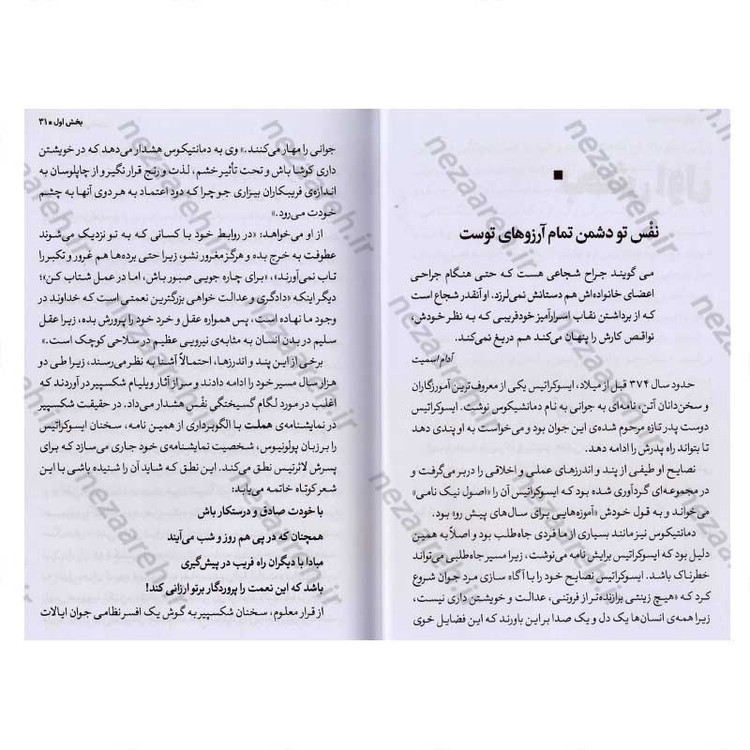 نفْس تو دشمن تمام آرزوهای توست
می گویند جراح شجاعی هست که حتی هنگام جراحی
اعضای خانواده‌اش هم دستانش نمی‌لرزد. او آنقدر شجاع است
که از برداشتن نقاب اسرارآمیز خودفریبی که به نظر خودش،
نواقص کارش را پنهان می‌کند هم دریغ نمی‌کند.
آدام اسمیت
حدود سال ۳۷۴ قبل از میلاد، ایسوکراتیس یکی از معروف‌ترین آموزگاران
و سخن‌دانان آتن، نامه‌ای به جوانی به نام دمانشیکوس نوشت. ایسوکراتیس
دوست پدر تازه مرحوم شده‌ی این جوان بود و می‌خواست به او پندی دهد
تا بتواند راه پدرش را ادامه دهد.
نصایح او طیفی از پند و اندرزهای عملی و اخلاقی را دربر می‌گرفت و
در مجموعه‌ای گردآوری شده بود که ایسوکراتیس آن را «اصول نیک نامی»
می‌خواند و به قول خودش «آموزه‌هایی برای سال‌های پیش رو» بود.
دمانتیکوس نیز مانند بسیاری از ما فردی جاه‌طلب بود و اصلاً به همین
دلیل بود که ایسوکراتیس برایش نامه می‌نوشت، زیرا مسیر جاه‌طلبی می‌تواند
خطرناک باشد. ایسوکراتیس نصایح خود را با آگاه سازی مرد جوان شروع
کرد که «هیچ زینتی برازنده‌تر از فروتنی، عدالت و خویشتن داری نیست،
زیرا همه‌ی انسان‌ها یک دل و یک صدا بر این باورند که این فضایل خوی
بخش اول ■ ۳۱
جوانی را مهار می‌کنند.» وی به دمانتیکوس هشدار می‌دهد که در خویشتن
داری کوشا باش و تحت تأثیر خشم، لذت و رنج قرار نگیر و از چاپلوسان به
اندازه‌ی فریبکاران بیزاری جو چرا که دود اعتماد به هر دوی آنها به چشم
خودت می‌رود.»
از او می‌خواهد: «در روابط خود با کسانی که به تو نزدیک می‌شوند
عطوفت به خرج بده و هرگز مغرور نشو، زیرا حتی برده‌ها هم غرور و تکبر را
تاب نمی‌آورند»، «برای چاره جویی صبور باش، اما در عمل شتاب کن»؛
دیگر اینکه «دادگری و عدالت خواهی بزرگترین نعمتی است که خداوند در
وجود ما نهاده است، پس همواره عقل و خرد خود را پرورش بده، زیرا عقل
سلیم در بدن انسان به مثابه‌ی نیرویی عظیم در سلاحی کوچک است.»
برخی از این پند و اندرزها، احتمالاً آشنا به نظر می‌رسند، زیرا طی دو
هزار سال مسیر خود را ادامه دادند و سر از آثار ویلیام شکسپیر در آوردند که
اغلب در مورد لگام گسیختگی نفْس هشدار می‌داد. در حقیقت شکسپیر
در نمایشنامه‌ی هملت با الگوبرداری از همین نامه، سخنان ایسوکراتیس
را بر زبان پولونیوس، شخصیت نمایشنامه‌ی خود جاری می‌سازد که برای
پسرش لائرتیس نطق می‌کند. این نطق که شاید آن را شنیده باشی با این
شعر کوتاه خاتمه می‌یابد:
با خودت صادق و درستکار باش
همچنان که در پی هم روز و شب می‌آیند
مبادا با دیگران راه فریب در پیش‌گیری
باشد که این نعمت را پروردگار بر تو ارزانی کند!
از قرار معلوم، سخنان شکسپیر به گوش یک افسر نظامی جوان ایالات
nezaareh.ir